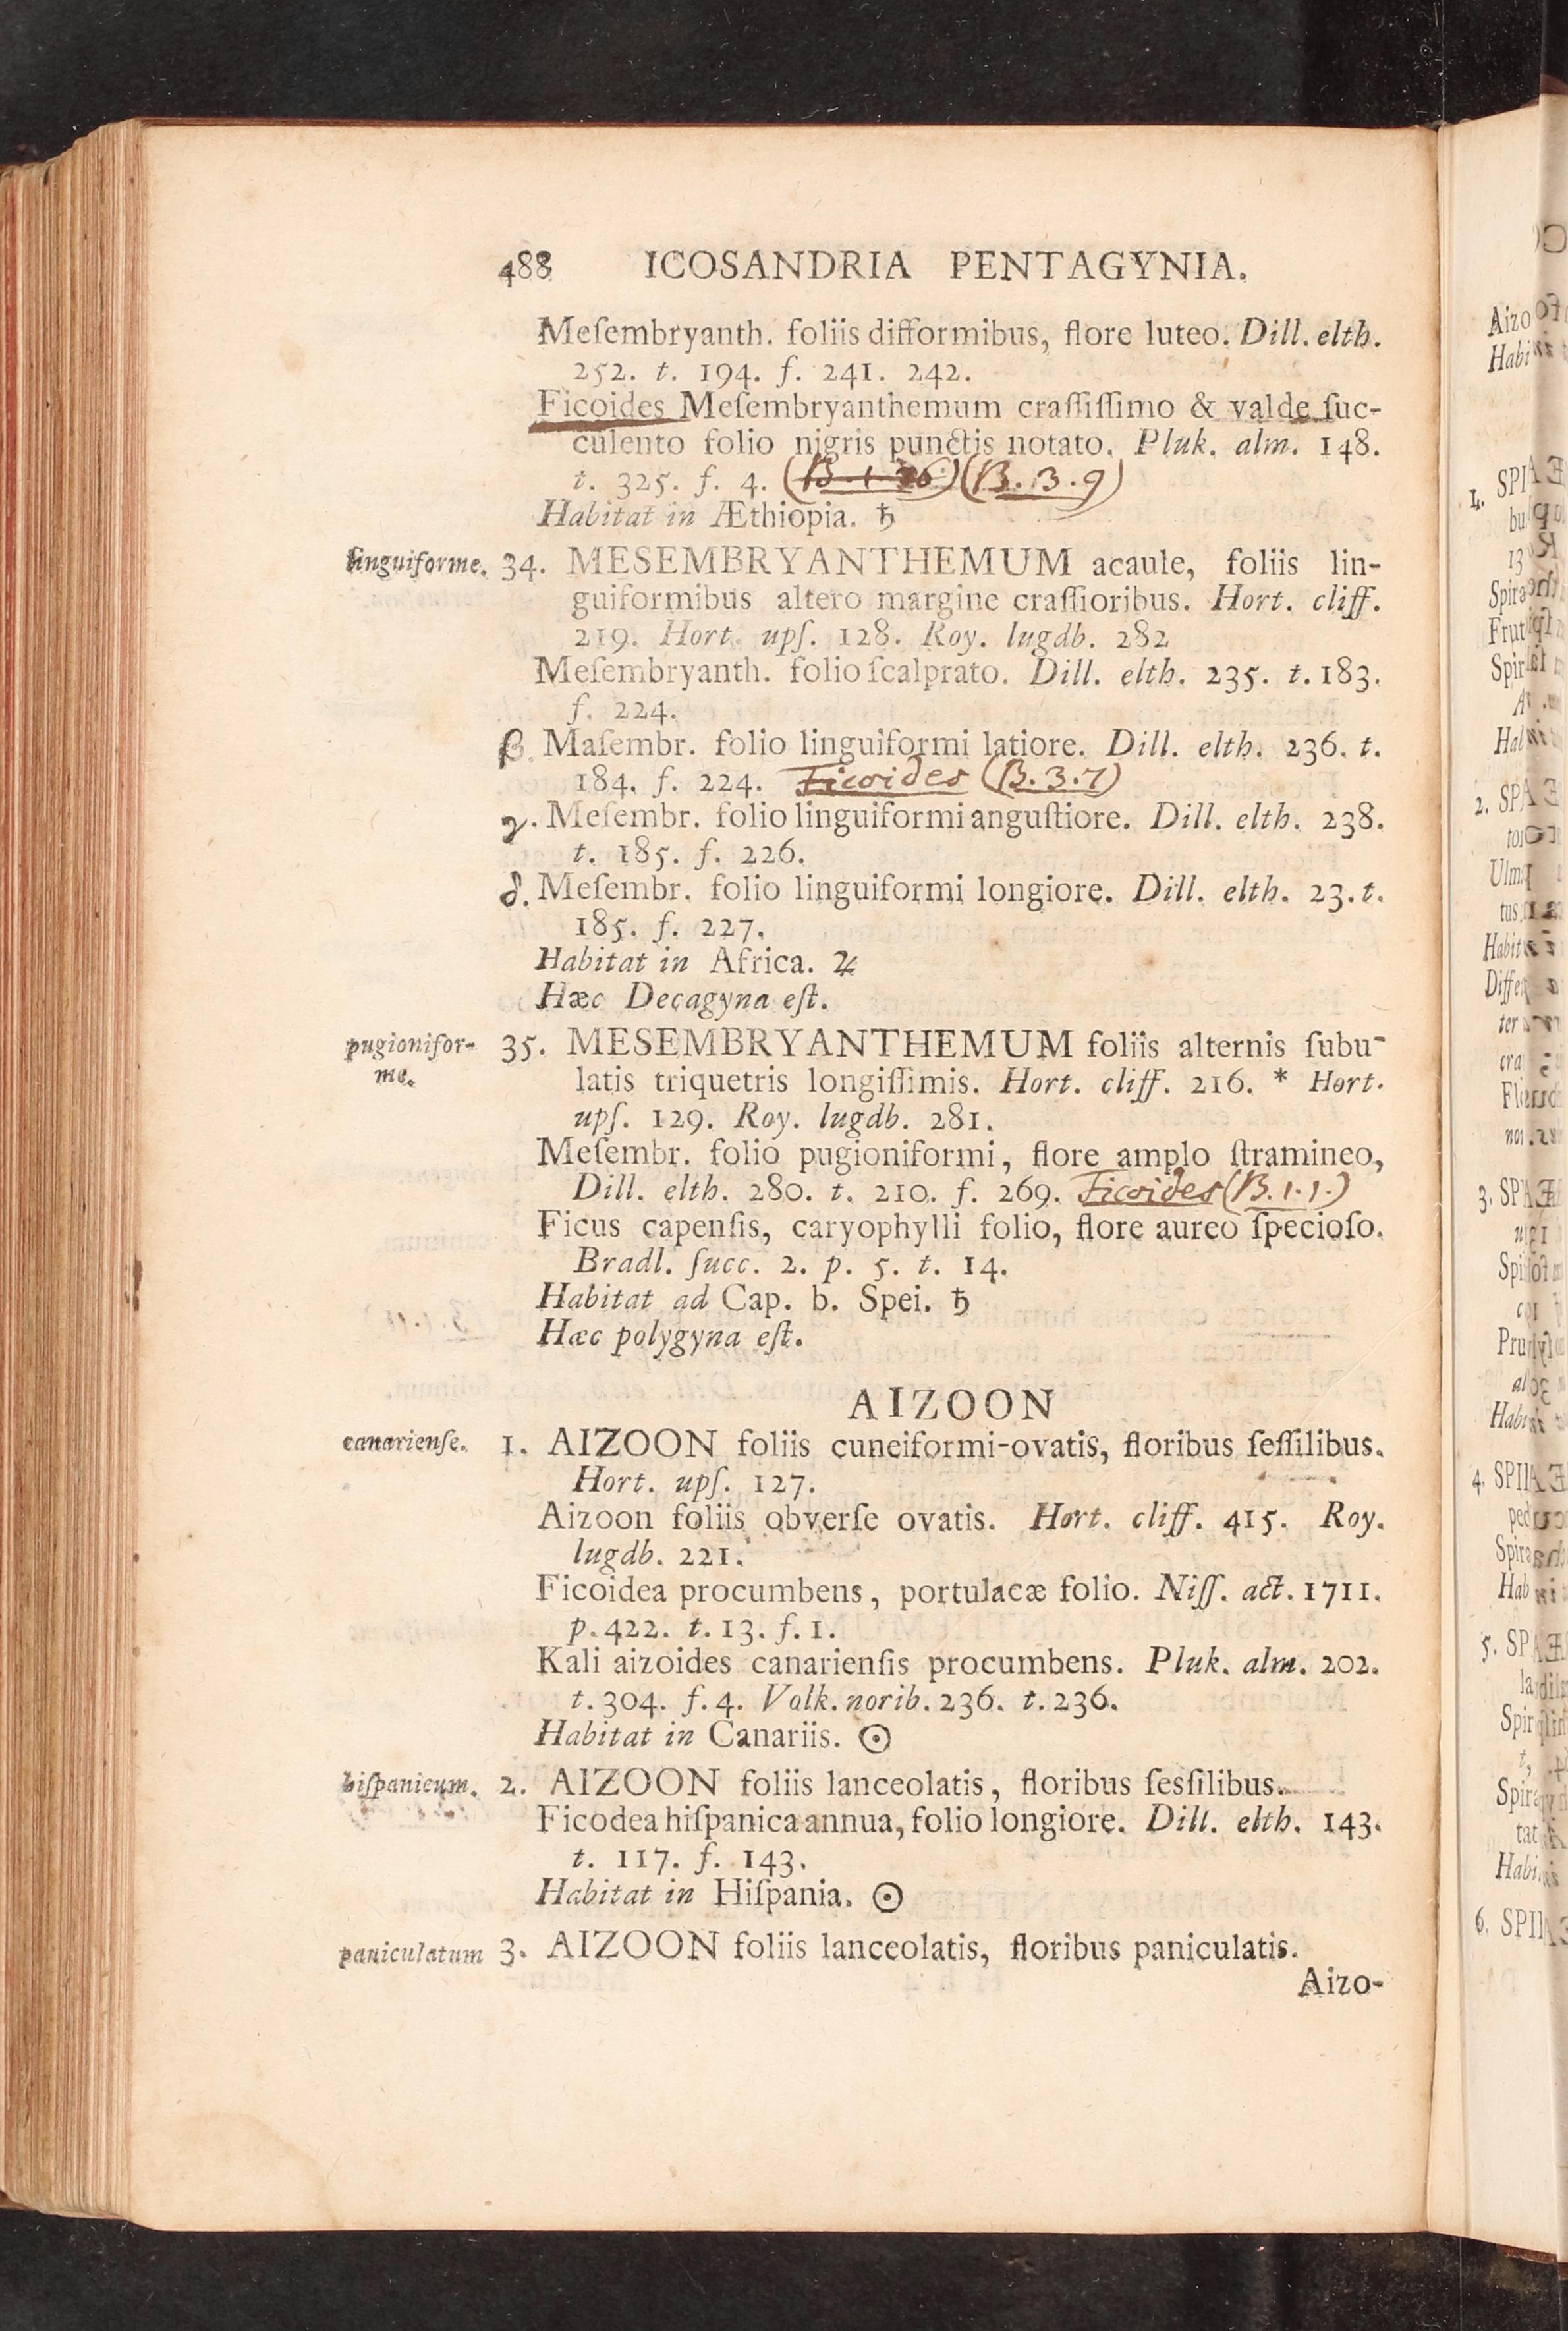 488 ICOSANDRIA PENTAGYNIA.
Meſembryanth. foliis difformibus, flore luteo. Dill. elth.
252. t. 194. f. 241. 242.
Ficoides Meſembryanthemum craſſiſſimo & valde ſuc-
culento folio nigris punctis notato. Pluk. alm. 148.
t. 325. f. 4. (B. 3. 9)
Habitat in Æthiopia. ♄
linguiforme. 34. MESEMBRYANTHEMUM acaule, foliis lin-
guiformibus altero margine craſſioribus. Hort. cliff.
219. Hort. upſ. 128. Roy. lugdb. 282
Meſembryanth. folio ſcalprato. Dill. elth. 235. t. 183.
f. 224.
β. Maſembr. folio linguiformi latiore. Dill. elth. 236. t.
184. f. 224. Ficoides (B. 3. 7)
γ. Meſembr. folio linguiformi anguſtiore. Dill. elth. 238.
t. 185. f. 226.
δ. Meſembr. folio linguiformi longiore. Dill. elth. 23. t.
185. f. 227.
Habitat in Africa. ♃
Hæc Decagyna eſt.
pugionifor- 35. MESEMBRYANTHEMUM foliis alternis ſubu-
me. latis triquetris longiſſimis. Hort. cliff. 216. * Hort.
upſ. 129. Roy. lugdb. 281.
Meſembr. folio pugioniformi, flore amplo ſtramineo,
Dill. elth. 280. t. 210. f. 269. Ficoides (B. 1. 1.)
Ficus capenſis, caryophylli folio, flore aureo ſpecioſo.
Bradl. ſucc. 2. p. 5. t. 14.
Habitat ad Cap. b. Spei. ♄
Hæc polygyna eſt.
AIZOON
canarienſe. 1. AIZOON foliis cuneiformi-ovatis, floribus ſeſſilibus.
Hort. upſ. 127.
Aizoon foliis obverſe ovatis. Hort. cliff. 415. Roy.
lugdb. 221.
Ficoidea procumbens, portulacæ folio. Niſſ. act. 1711.
p. 422. t. 13. f. 1.
Kali aizoides canarienſis procumbens. Pluk. alm. 202.
t. 304. f. 4. Volk. norib. 236. t. 236.
Habitat in Canariis. ☉
hiſpanicum. 2. AIZOON foliis lanceolatis, floribus ſesſilibus.
Ficodea hiſpanica annua, folio longiore. Dill. elth. 143.
t. 117. f. 143.
Habitat in Hiſpania. ☉
paniculatum 3. AIZOON foliis lanceolatis, floribus paniculatis.
Aizo-